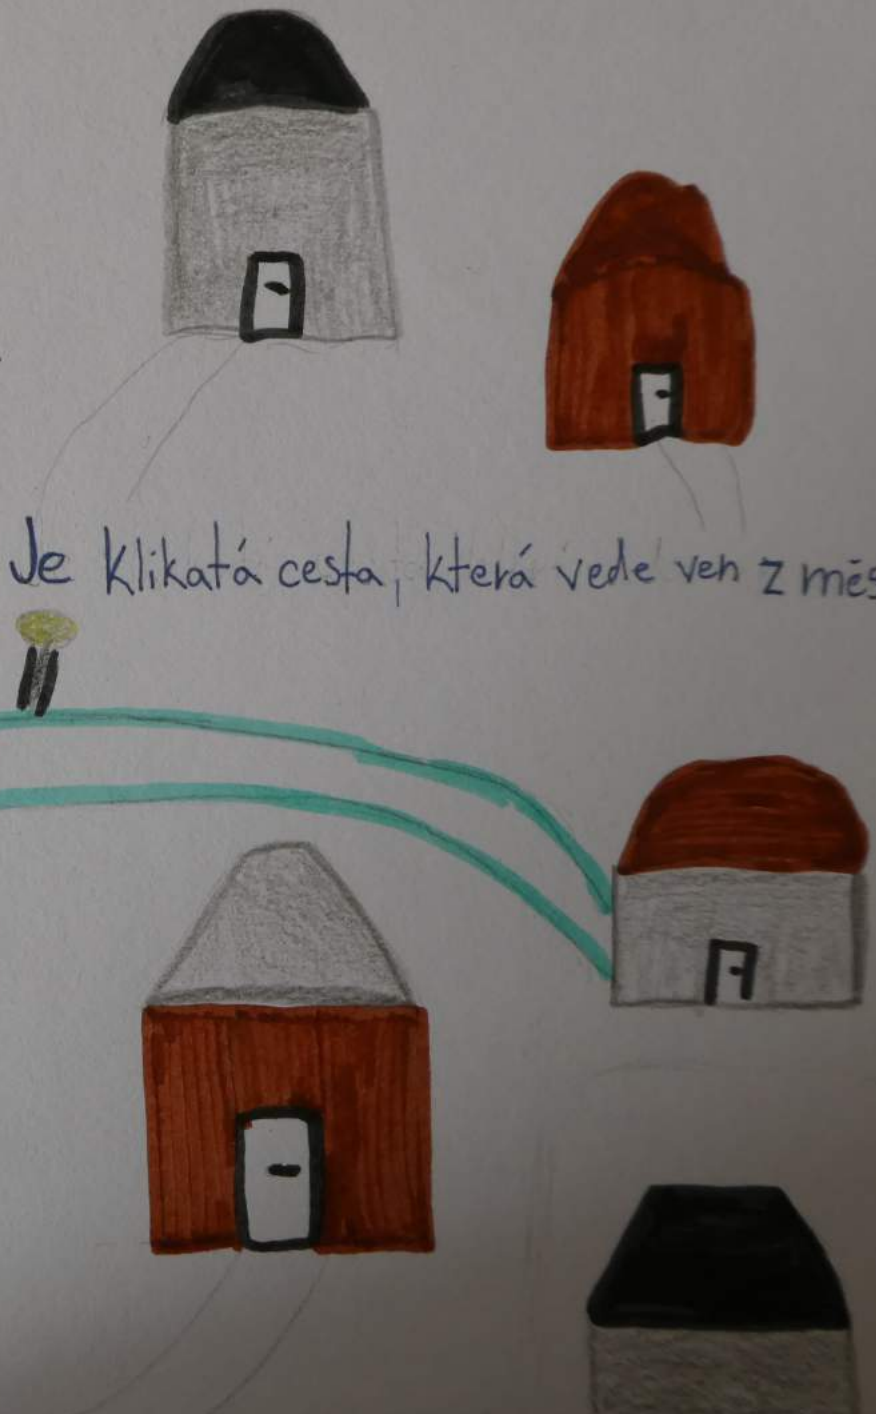 Je klikatá cesta, která vede ven z měs